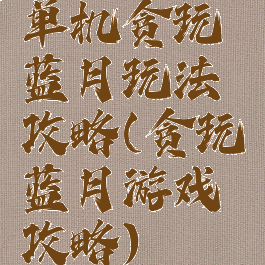 单机贪玩
蓝月玩法
攻略(贪玩
蓝月游戏
攻略)